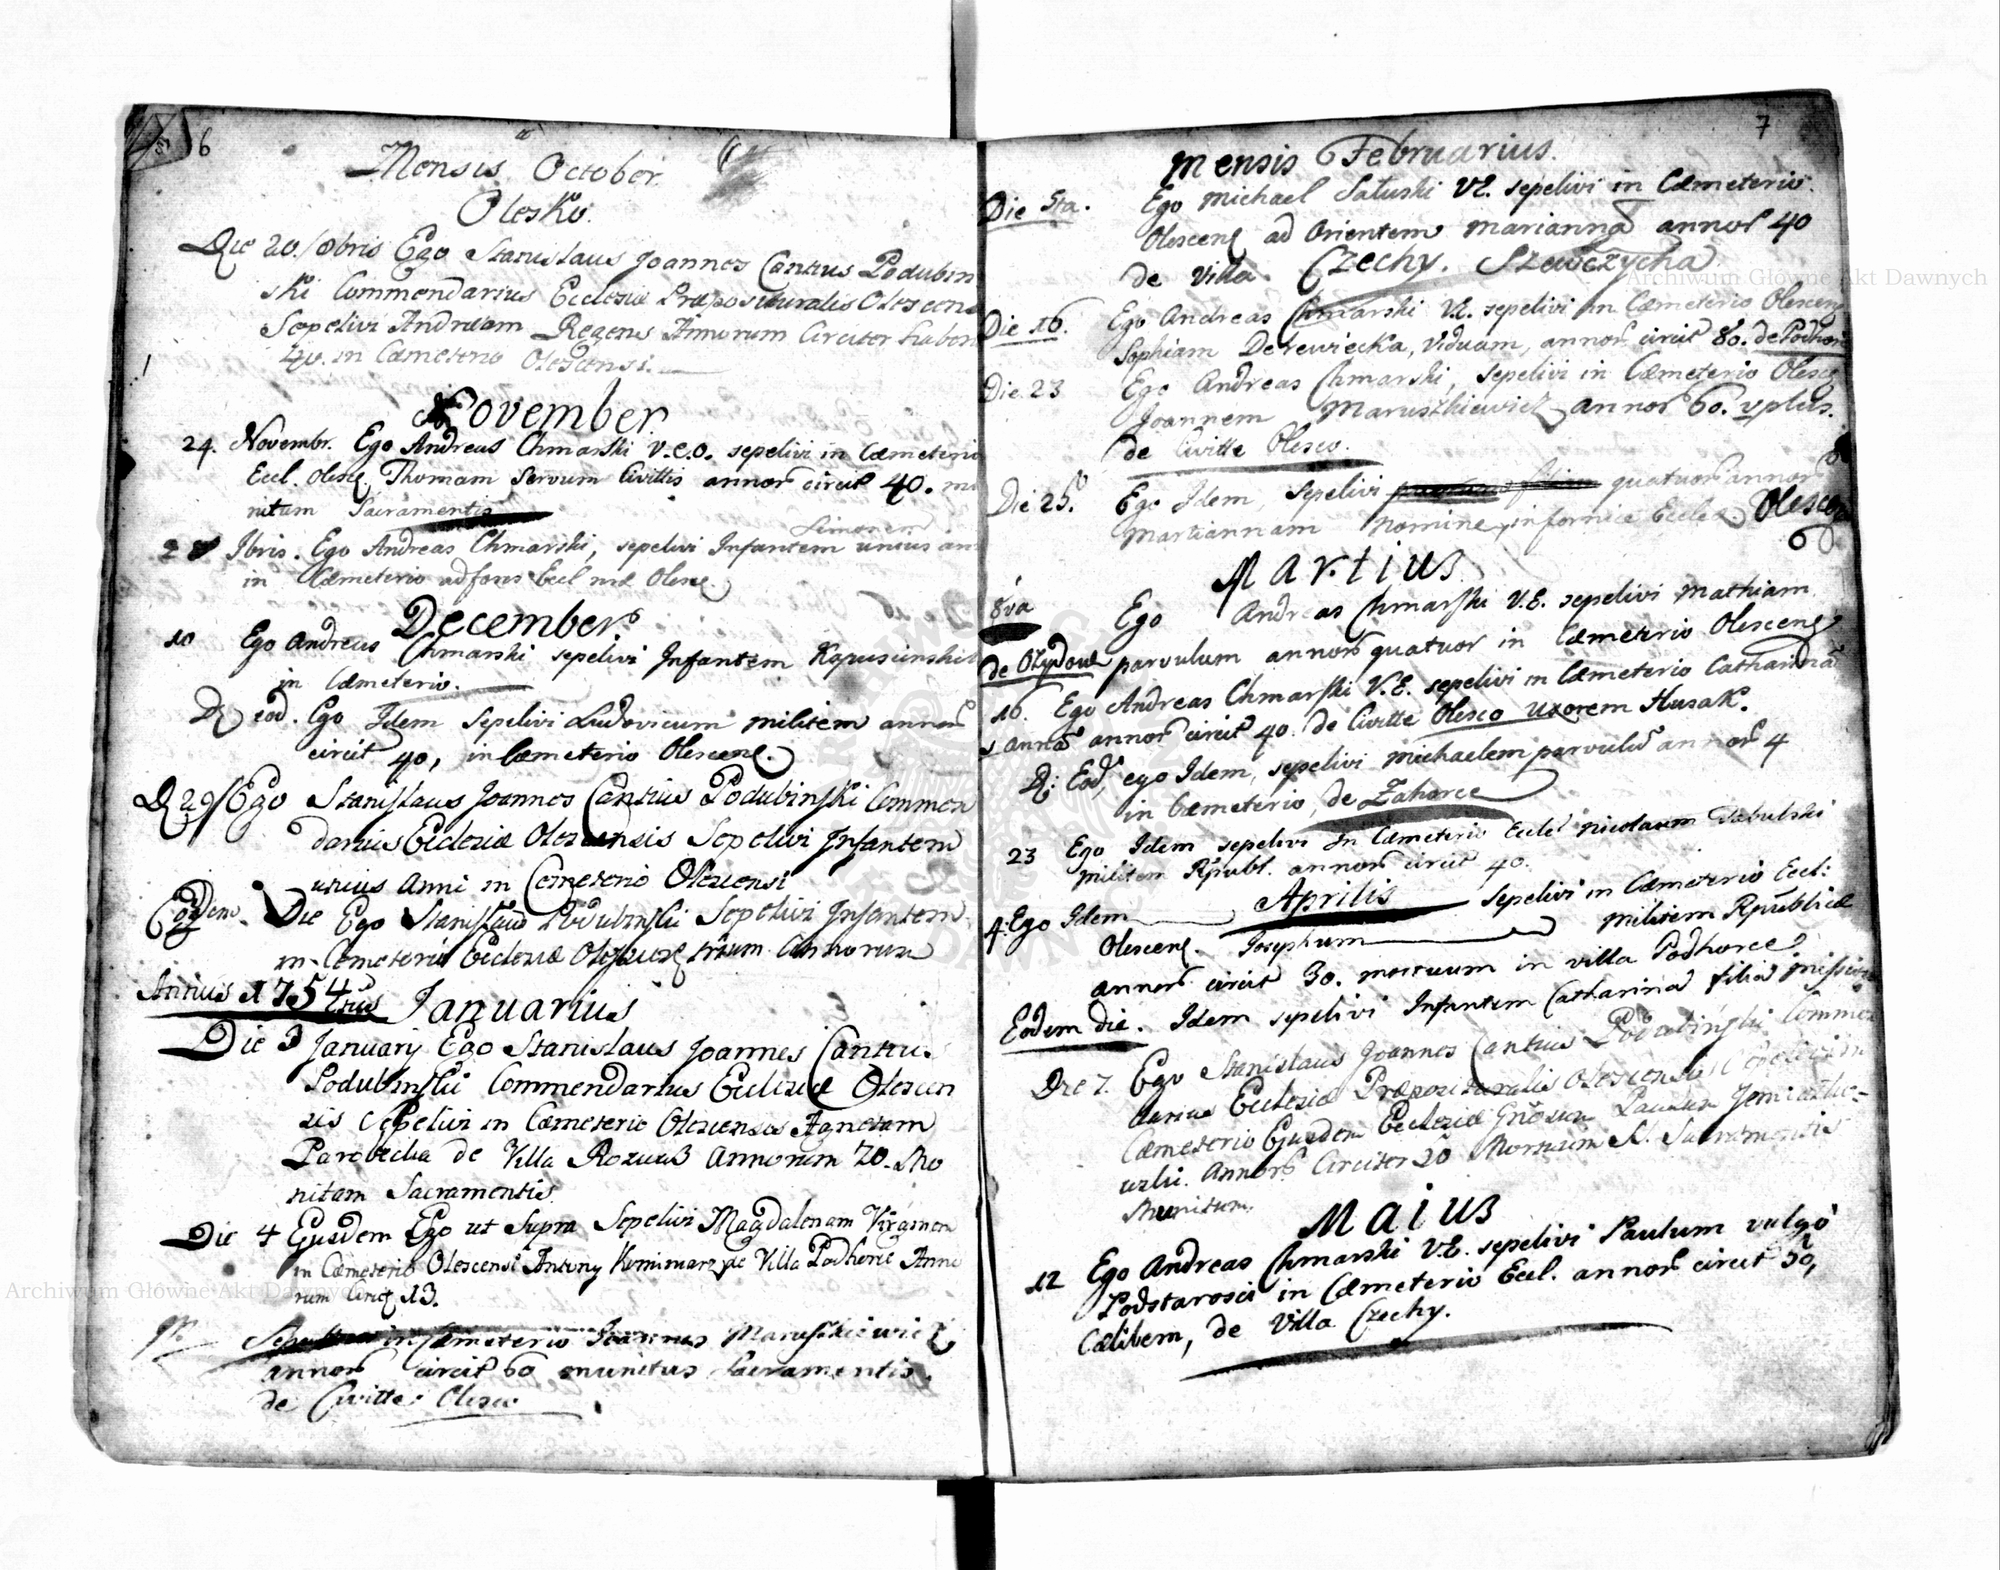 6
Mensis October
Olesko.
Die 20. 8bris Ego Stanislaus Joannes Cantius Podubin
ski Commendarius Ecclesiæ Præposituralis Olescens
Sepelivi Andream Regens Annorum Circiter haben
40. in Cæmeterio Olescensi.
November
24. Novembr. Ego Andreas Chmarski V.E.O. sepelivi in Cæmeterio
Eccl. Olesc. Thomam Servum Civittis annor circit 40. mu
nitum Sacramentis
Simonem
28 Ibris. Ego Andreas Chmarski, sepelivi Infantem unius an
in Cæmeterio ad fores Eccl Olesc.
December
10 Ego Andreas Chmarski sepelivi Infantem Kapuscinskich
in Cæmeterio.
D. eod. Ego Idem sepelivi Ludovicum militem annor
circit 40, in Cæmeterio Olescens.
D 29 Ego Stanislaus Joannes Cantius Podubinski Commen
darius Ecclesiæ Olescensis Sepelivi Infantem
unius Anni in Cemeterio Olescensi
Eodem. Die Ego Stanislaus Podubinski Sepelivi Infantem
in Cemeterio Ecclesiæ trium Annorum
Annus 1754tus Januarius
Die 3 January Ego Stanislaus Joannes Cantius
Podubinski Commendarius Eclesiæ Olescen
sis Sepelivi in Cæmeterio Olescensis Agnetam
Parobecka de Villa Annorum 70. Mu
nitam Sacramentis
Die 4 Ejusdem Ego ut Supra Sepelivi Magdalenam Virginem
in Cæmeterio Olescensi Antony Kominarz de Villa Podhorce Anno
rum Circ 13.
in Cæmeterio Joannes Maruszkiewicz
annor circit 60 munitus Sacramentis.
de Civitte Olesco
7
Mensis Februarius.
Die 5ta. Ego Michael Saluski V.E. sepelivi in Cæmeterio
Olescens ad Orientem Marianna annor 40
de villa Czechy. Szewczycha
Die 16. Ego Andreas Chmarski V.E. sepelivi in Cæmeterio Olescens
Sophiam Derewiecka, Viduam, annor circit 80. de Podhor
Die 23 Ego Andreas Chmarski, sepelivi in Cæmeterio Olesc
Joannem Maruszkiewicz annor 60. & plus.
de Civitte Olesco.
Die 25. Ego Idem, sepelivi quatuor annor
Martiannam nomine, in fornice Eccles Olescen
Martius
8va Ego Andreas Chmarski V.E. sepelivi Mathiam
de Ozydow parvulum annor quatuor in Cæmeterio Olescens
16. Ego Andreas Chmarski V.E. sepelivi in Cæmeterio Catharina
annor circit 40. de Civitte Olesco uxorem Husak.
D: Eod, ego Idem, sepelivi Michaelem parvulu annor 4
in Cæmeterio, de Zahorce
23 Ego Idem sepelivi in Cæmeterio Eccle Nicolaum
militem Rpubl. annor circit 40.
Aprilis
4. Ego Idem sepelivi in Cæmeterio Eccl:
Olescens. Josephum militem Rpublicæ
annor circit 30. mortuum in villa Podhorce
Eodem die. Idem sepelivi Infantem Catharina filia
Die 7. Ego Stanislaus Joannes Cantius Podubinski Commen
darius Ecclesiæ Præposituralis Olescensis Sepelivi in
Cæmeterio Ejusdem Ecclesiæ
Annor Circiter 20 Mortuum S. Sacramentis
Munitum.
Maius
12 Ego Andreas Chmarski V.E. sepelivi Paulum vulgo
Podstarosci in Cæmeterio Eccl. annor circit 50,
Cælibem, de Villa Czechy.
Archiwum Główne Akt Dawnych
Archiwum Główne Akt Dawnych